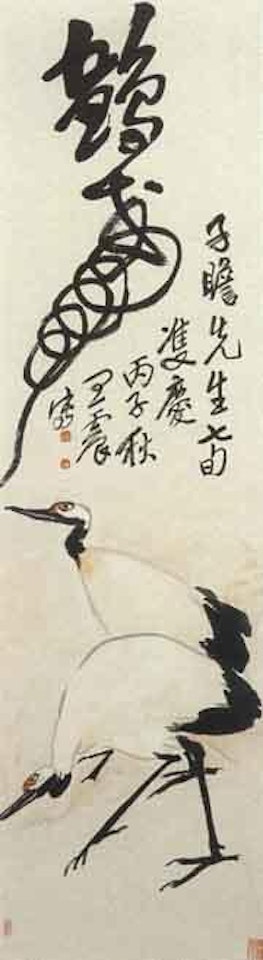 鶴壽
子瞻先生七旬
雙慶
丙子秋
王震
寫